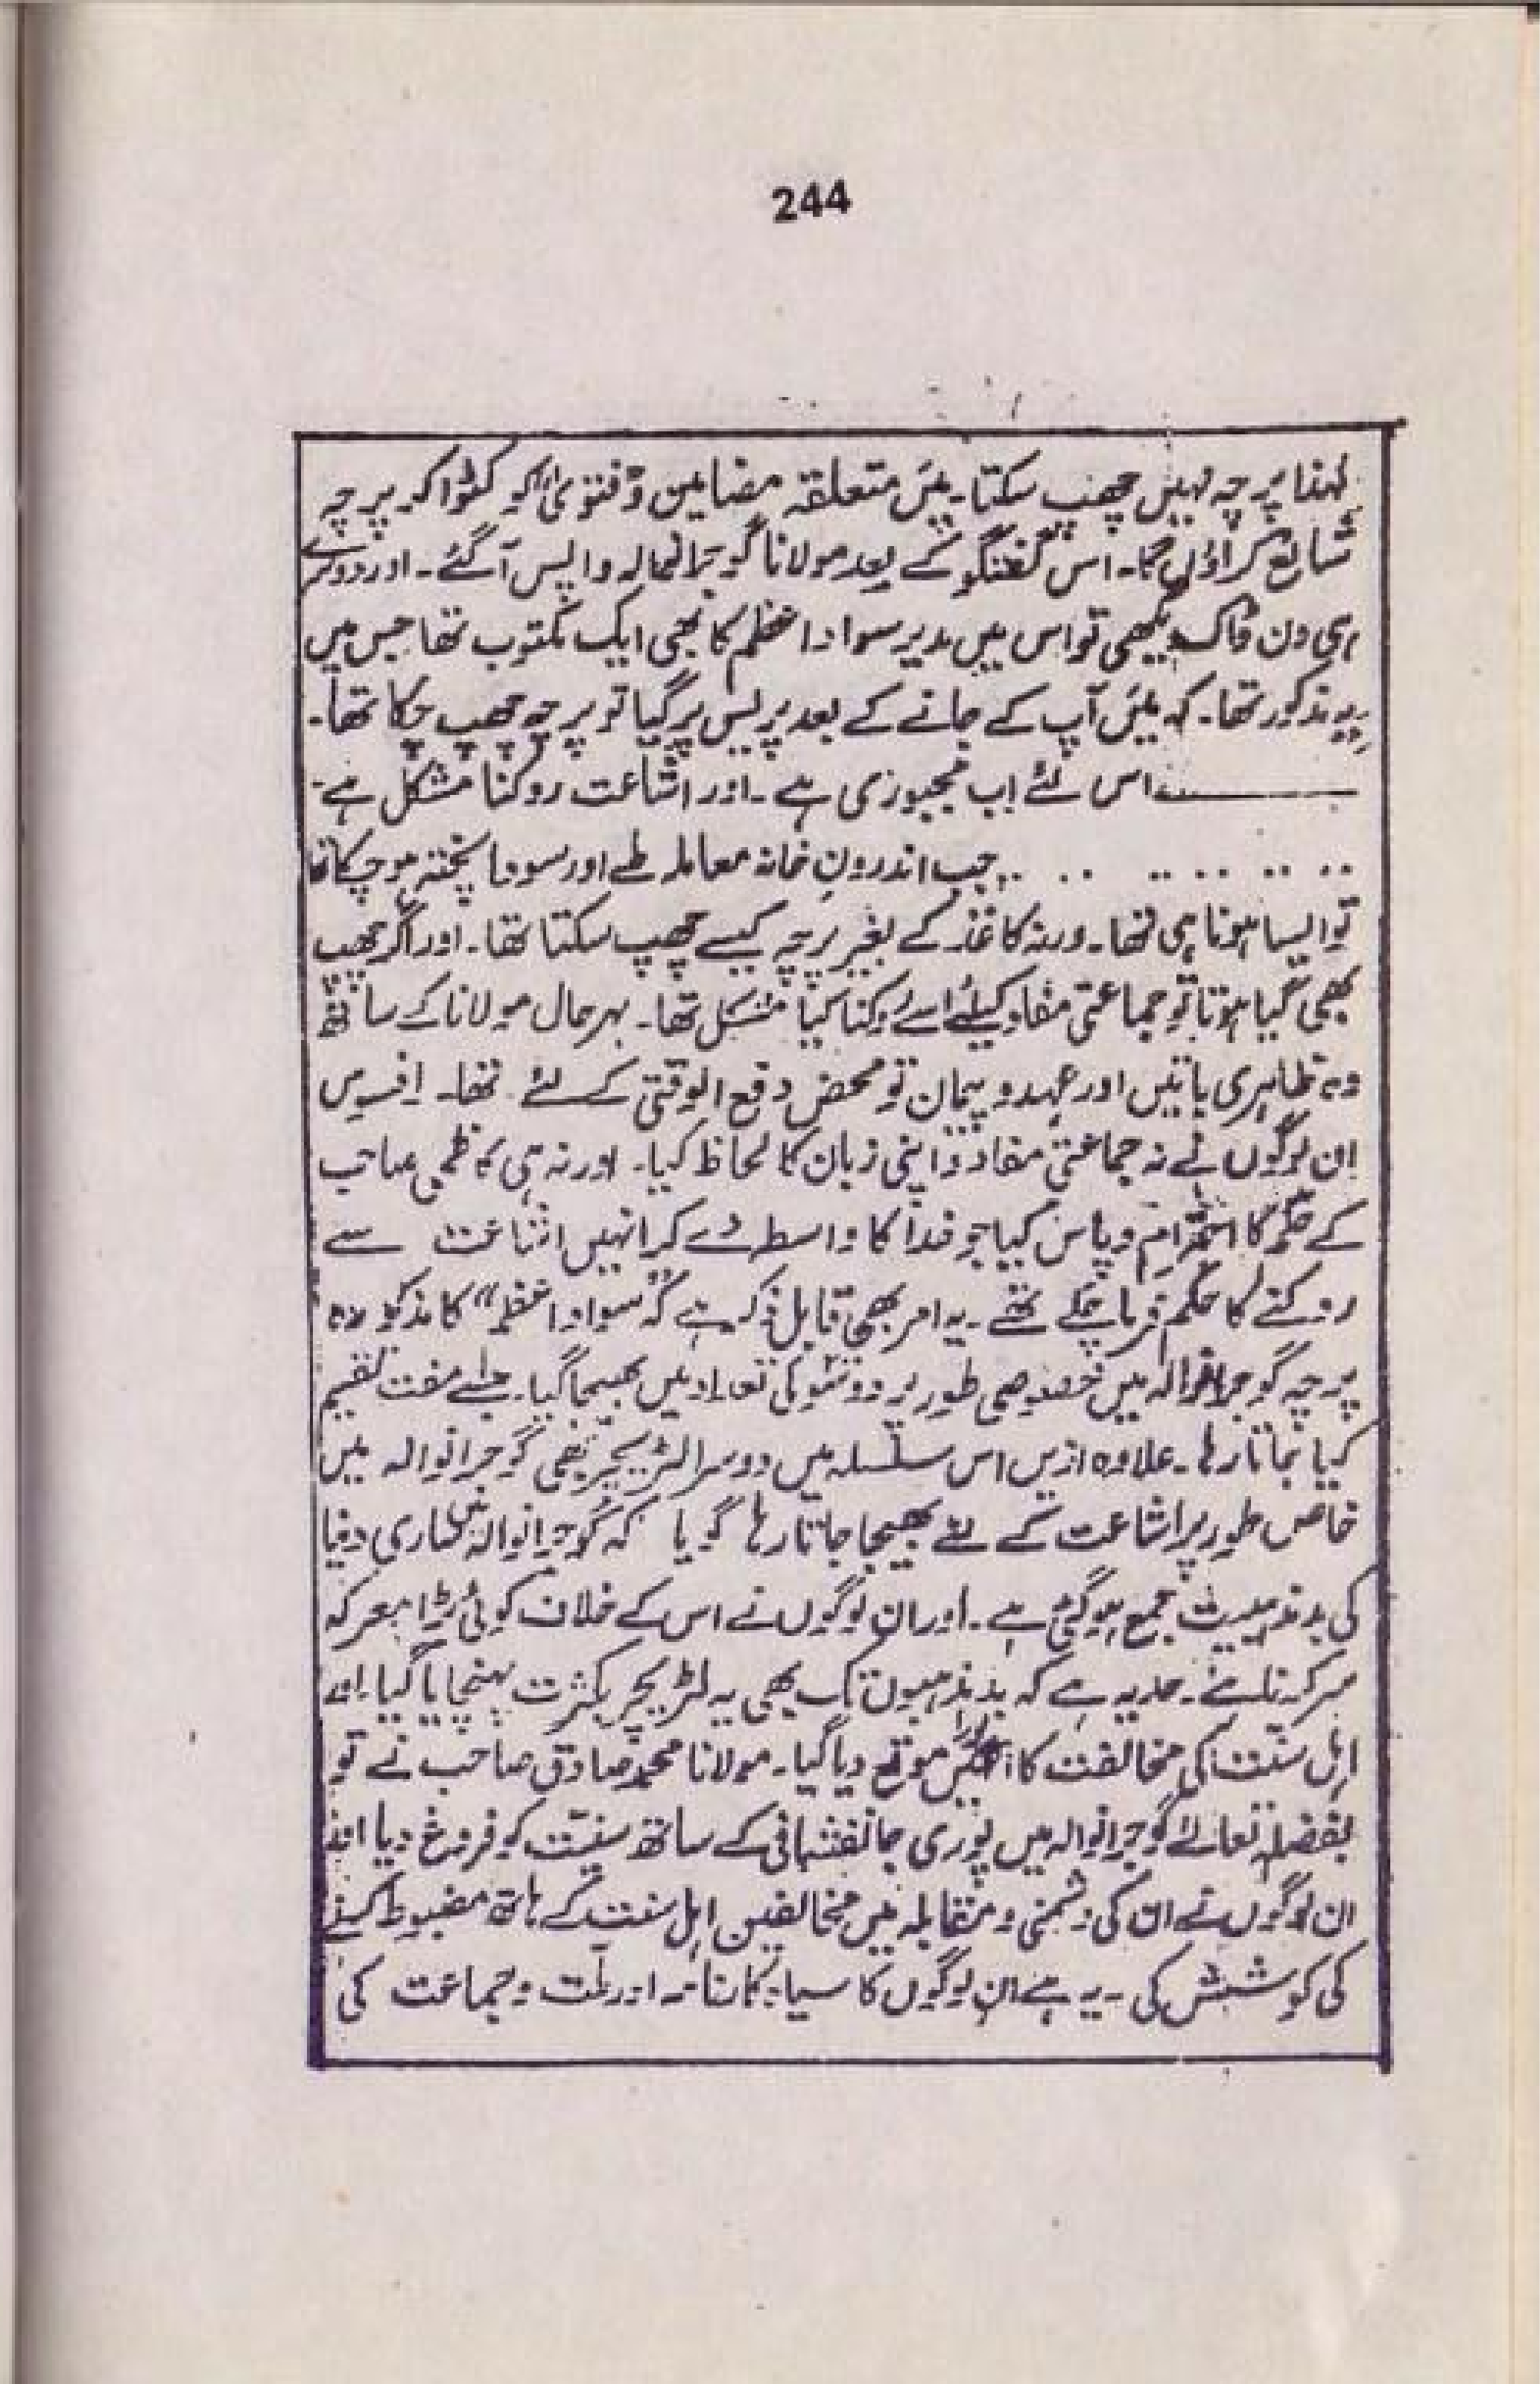 244
لہٰذا پرچہ نہیں چھپ سکتا۔ میں متعلقہ مضامین و فتویٰ کو کٹوا کر پرچہ
شائع کراؤں گا۔ اس گفتگو کے بعد مولانا گوجرانوالہ واپس آگئے۔ اور دوسرے
ہی دن ڈاک دیکھی تو اس میں مدیر سواد اعظم کا بھی ایک مکتوب تھا جس میں
یہ مذکور تھا۔ کہ میں آپ کے جانے کے بعد پریس پر گیا تو پرچہ چھپ چکا تھا۔
ــــــــ اس لئے اب مجبوری ہے۔ اور اشاعت روکنا مشکل ہے۔
.. .. .. .. .. .. جب اندرونِ خانہ معاملہ طے اور سودا پختہ ہوچکا تھا
تو ایسا ہونا ہی تھا۔ ورنہ کاغذ کے بغیر پرچہ کیسے چھپ سکتا تھا۔ اور اگر چھپ
بھی گیا ہوتا تو جماعتی مفاد کیلئے اسے روکنا کیا مشکل تھا۔ بہرحال مولانا کے ساتھ
وہ ظاہری باتیں اور عہد و پیمان تو محض دفع الوقتی کے لئے تھا۔ افسوس
ان لوگوں نے نہ جماعتی مفاد و اپنی زبان کا لحاظ کیا۔ اور نہ ہی کاظمی صاحب
کے حکم کا احترام و پاس کیا جو خدا کا واسطہ دے کر انہیں اشاعت سے
روکنے کا حکم فرما چکے تھے۔ یہ امر بھی قابل ذکر ہے کہ "سواد اعظم" کا مذکورہ
پرچہ گوجرانوالہ میں خصوصی طور پر دو سو کی تعداد میں بھیجا گیا۔ جسے مفت تقسیم
کیا جاتا رہا۔ علاوہ ازیں اس سلسلہ میں دوسرا لٹریچر بھی گوجرانوالہ میں
خاص طور پر اشاعت کے لئے بھیجا جاتا رہا گویا کہ گوجرانوالہ میں ساری دنیا
کی بدمذہبیت جمع ہوگئی ہے۔ اور ان لوگوں نے اس کے خلاف کوئی بڑا معرکہ
سر کرنا ہے۔ حد یہ ہے کہ بدمذہبوں تک بھی یہ لٹریچر بکثرت پہنچایا گیا۔ اور
اہل سنّت کی مخالفت کا انہیں موقع دیا گیا۔ مولانا محمد صادق صاحب نے تو
بفضلہٖ تعالےٰ گوجرانوالہ میں پوری جانفشانی کے ساتھ سنیّت کو فروغ دیا اور
ان لوگوں نے ان کی دشمنی و مقابلہ میں مخالفین اہل سنت کے ہاتھ مضبوط کرنے
کی کوشش کی۔ یہ ہے ان لوگوں کا سیاہ کارنامہ اور ملّت و جماعت کی